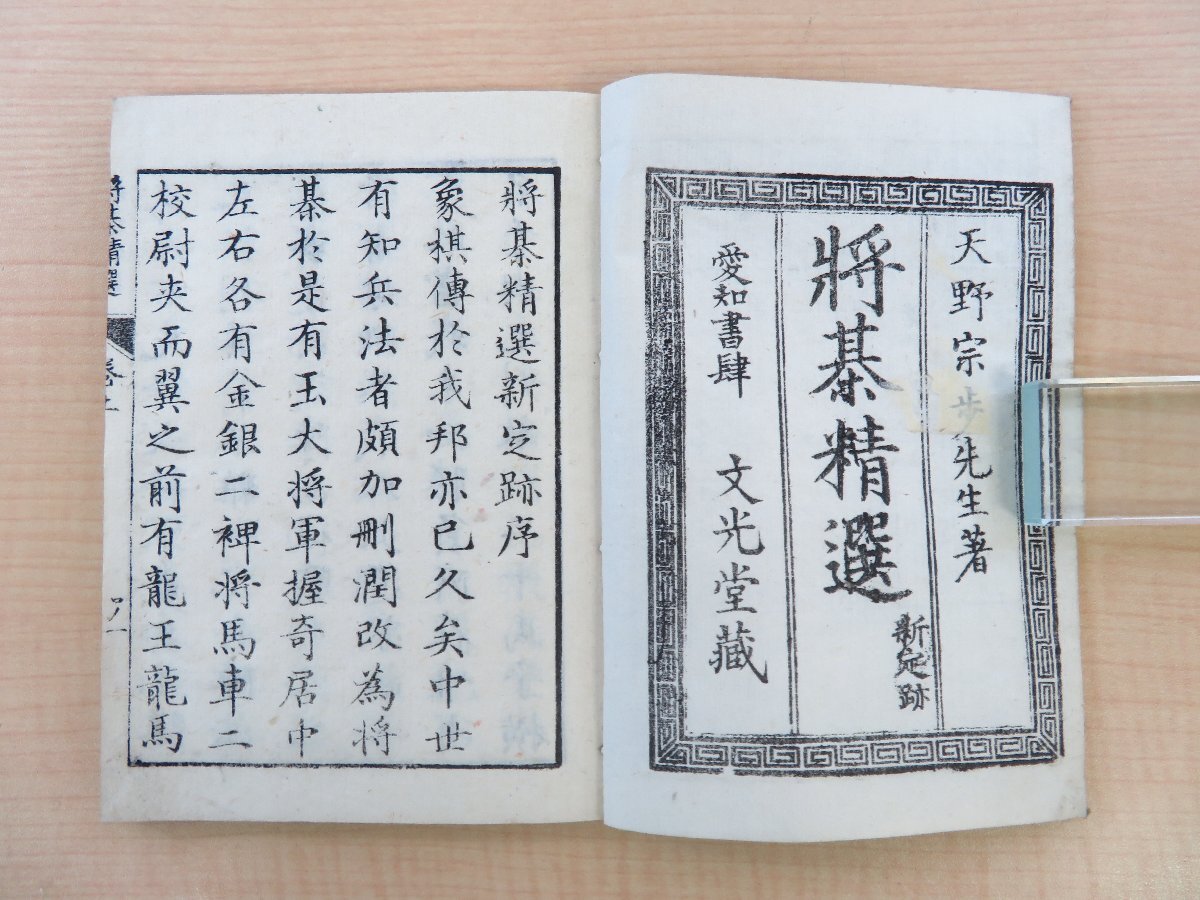 天野宗歩先生著
將棊精選
新定跡
愛知書肆 文光堂藏
將棊精選新定跡序
象棋傳於我邦亦已久矣中世
有知兵法者頗加刪潤改為将
棊於是有王大将軍握奇居中
左右各有金銀二裨将馬車二
校尉夾而翼之前有龍王龍馬
將棊精選